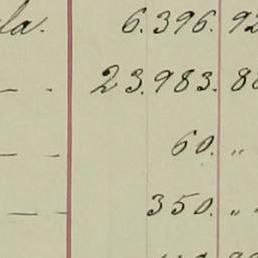 la. 6.396. 92
— . 23.983. 8
— — 60. "
— — 350. "